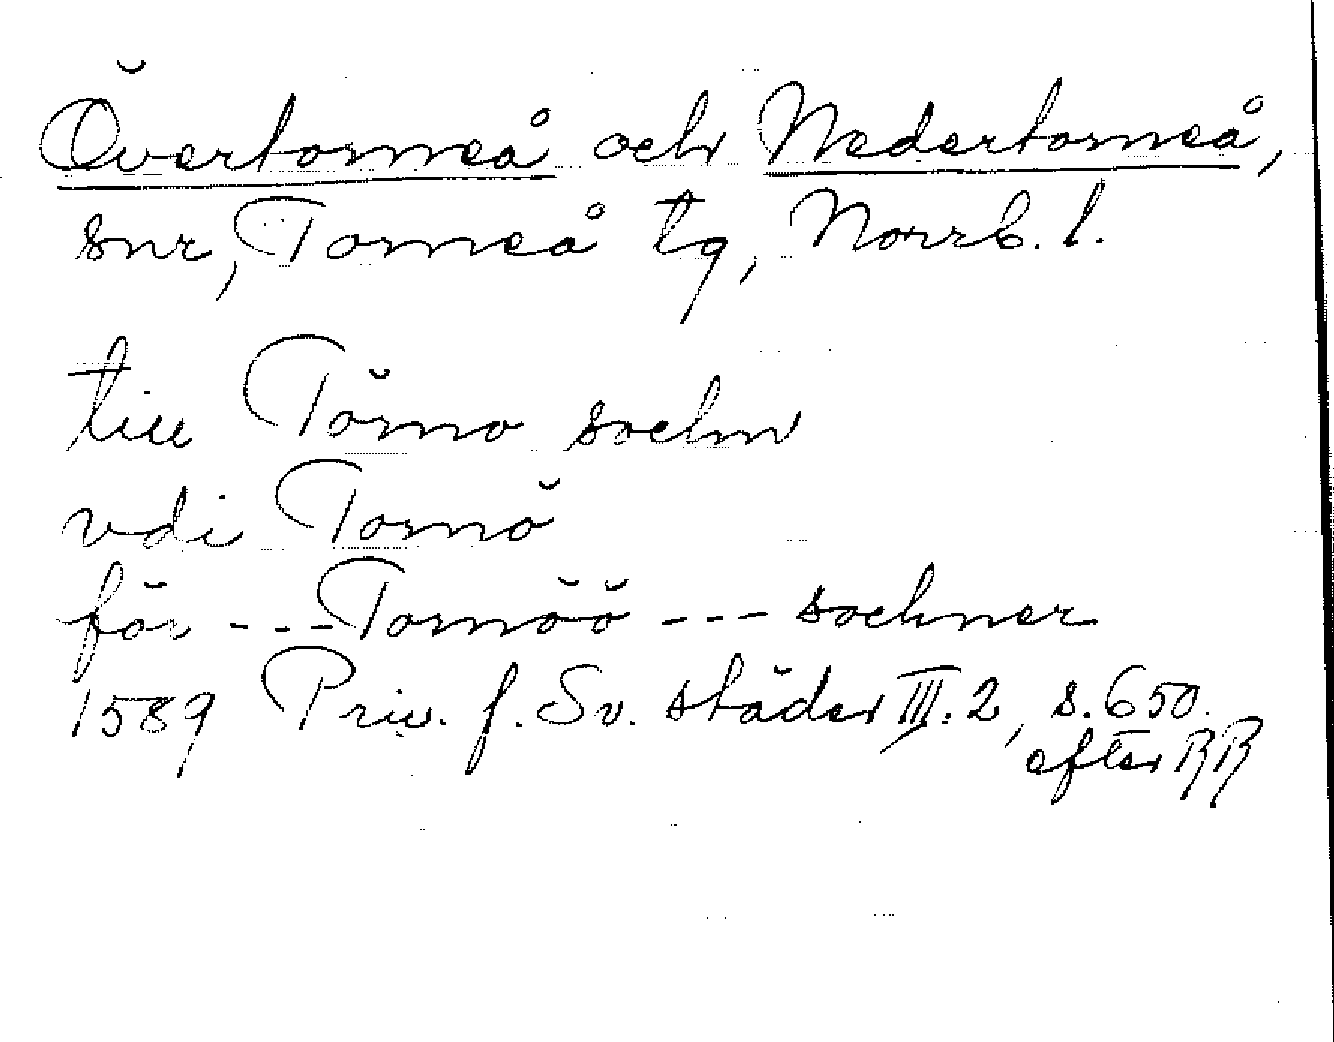 Övertorneå och Nedertorneå,
snr, Torneå tg, Norrb. l.
till Törno sochn
vdi Tornö
för --- Tornöö --- sochner
1589 Priv. f. Sv. städer III:2, s. 650.
efter RR